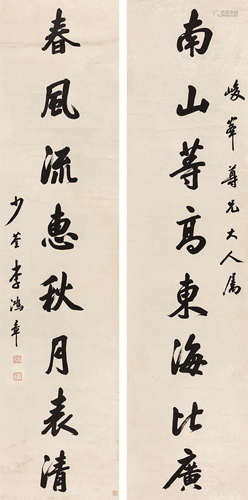 峻峯尊兄大人属
南山等高東海比廣
春風流惠秋月表清
少荃李鴻章